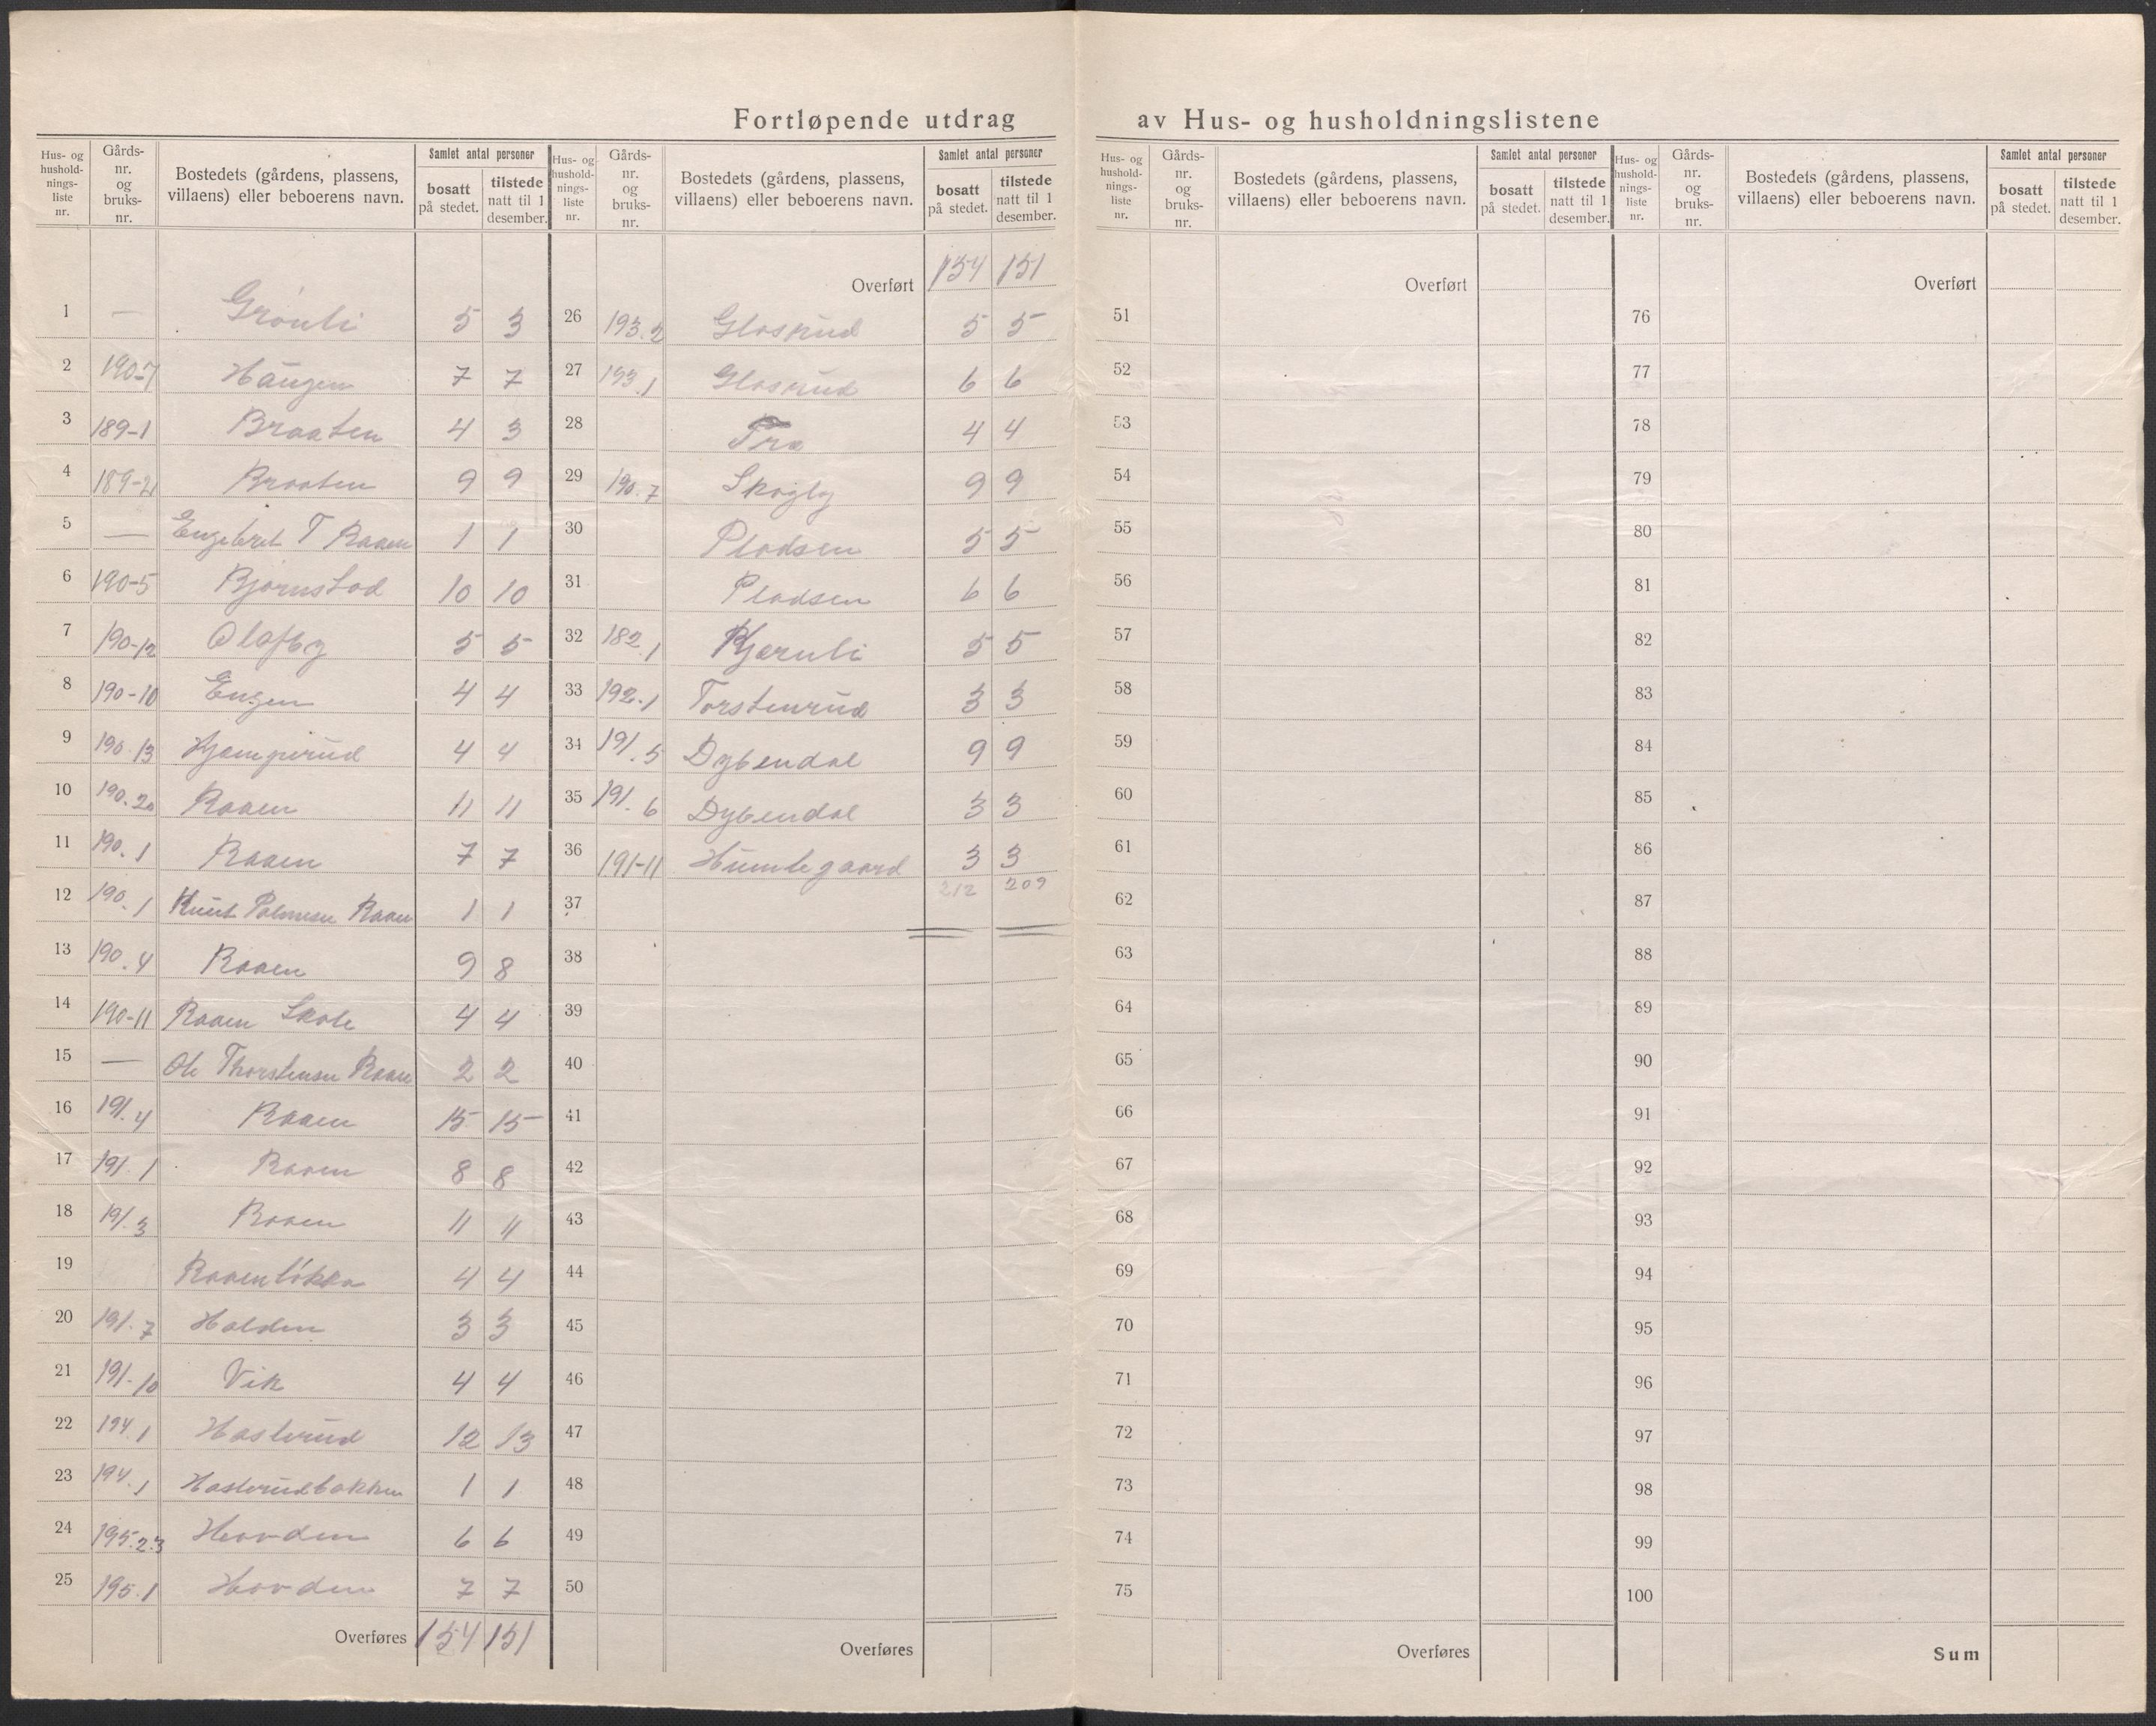 Fortløpende utdrag av Hus- og husholdningslistene
Hus- og hushold-nings-liste nr. | Gårds-nr. og bruks-nr. | Bostedets (gårdens, plassens, villaens) eller beboerens navn. | Samlet antal personer | bosatt på stedet. | tilstede natt til 1 desember.
1 — Grönli 5 3
2 190-7 Haugen 7 7
3 189-1 Braaten 4 3
4 189-2 Braaten 9 9
5 — Engebret T Raaen 1 1
6 190-5 Bjørnstad 10 10
7 190-12 Olafby 5 5
8 190-10 Engen 4 4
9 190.13 Hjamperud 4 4
10 190.20 Raaen 11 11
11 190.1 Raaen 7 7
12 190.1 Knut Palmesen Raaen 1 1
13 190.4 Raaen 9 8
14 190-11 Raaen Skole 4 4
15 — Ole Thorstensen Raaen 2 2
16 191.4 Raaen 15 15
17 191.1 Raaen 8 8
18 191.3 Raaen 11 11
19 Raaenløkka 4 4
20 191.7 Halden 3 3
21 191.10 Vik 4 4
22 194.1 Haslerud 12 13
23 194.1 Haslerudbakken 1 1
24 195.2.3 Hovden 6 6
25 195.1 Hovden 7 7
Overføres 154 151
Hus- og hushold-nings-liste nr. | Gårds-nr. og bruks-nr. | Bostedets (gårdens, plassens, villaens) eller beboerens navn. | Samlet antal personer | bosatt på stedet. | tilstede natt til 1 desember.
Overført 154 151
26 193.2 Glosrud 5 5
27 193.1 Glosrud 6 6
28 Tra 4 4
29 190.7 Skogly 9 9
30 Pladsen 5 5
31 Pladsen 6 6
32 182.1 Kjernli 5 5
33 192.1 Torstenrud 3 3
34 191.5 Dybendal 9 9
35 191.6 Dybendal 3 3
36 191-11 Humlegaard 3 3
37 212 209
38
39
40
41
42
43
44
45
46
47
48
49
50
Overføres
Hus- og hushold-nings-liste nr. | Gårds-nr. og bruks-nr. | Bostedets (gårdens, plassens, villaens) eller beboerens navn. | Samlet antal personer | bosatt på stedet. | tilstede natt til 1 desember.
Overført
51
52
53
54
55
56
57
58
59
60
61
62
63
64
65
66
67
68
69
70
71
72
73
74
75
Overføres
Hus- og hushold-nings-liste nr. | Gårds-nr. og bruks-nr. | Bostedets (gårdens, plassens, villaens) eller beboerens navn. | Samlet antal personer | bosatt på stedet. | tilstede natt til 1 desember.
Overført
76
77
78
79
80
81
82
83
84
85
86
87
88
89
90
91
92
93
94
95
96
97
98
99
100
Sum